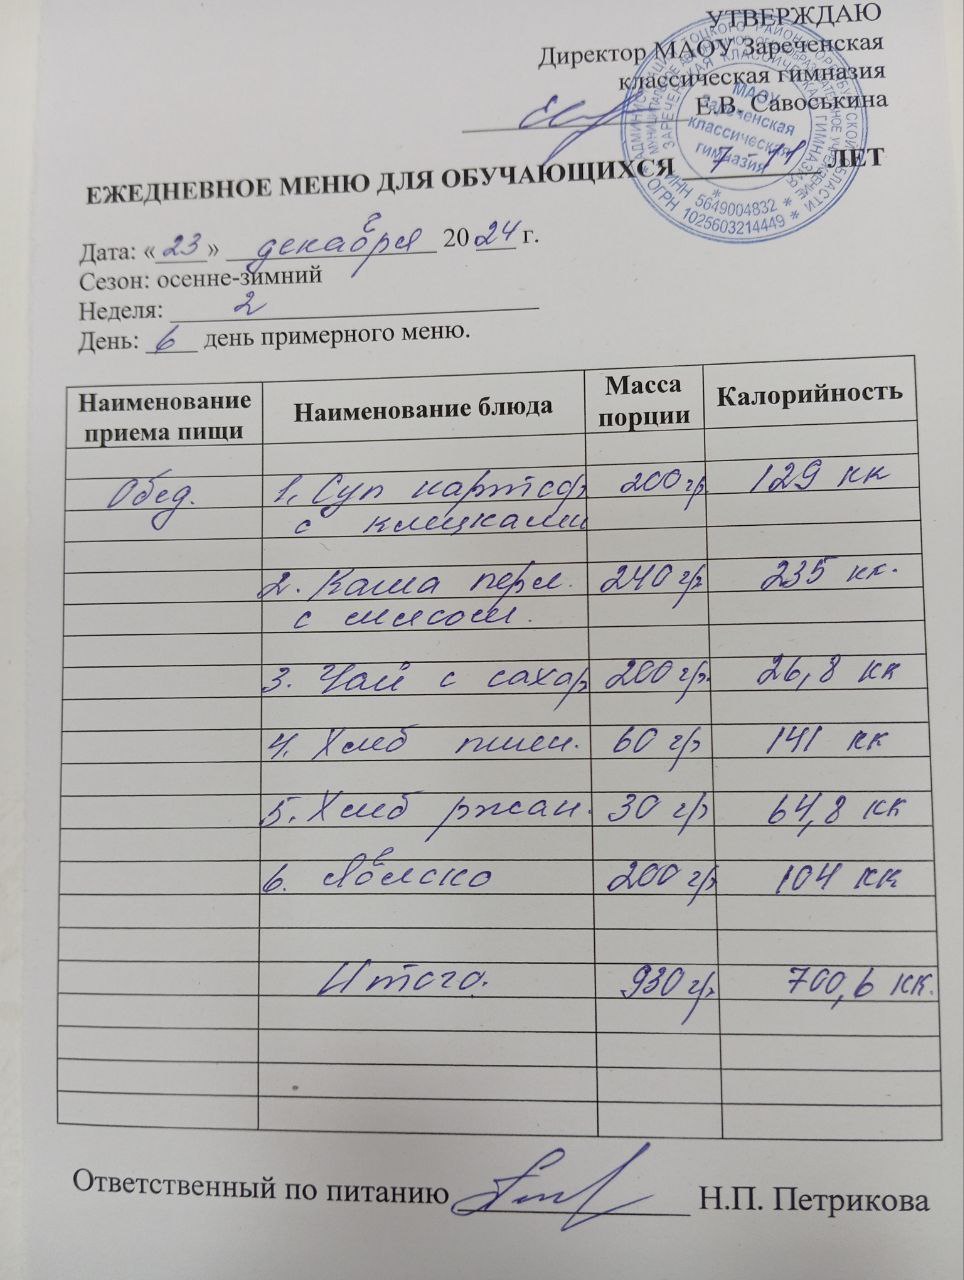 УТВЕРЖДАЮ
Директор МАОУ Зареченская
классическая гимназия
Е.В. Савоськина
МАОУ
Зареченская
классическая
гимназия
ИНН 5649004832 *
* ОГРН 1025603214449 *
ЕЖЕДНЕВНОЕ МЕНЮ ДЛЯ ОБУЧАЮЩИХСЯ 7-11 ЛЕТ
Дата: «23» декабря 2024 г.
Сезон: осенне-зимний
Неделя: 2
День: 6 день примерного меню.
Наименование приема пищи Наименование блюда Масса порции Калорийность
Обед. 1. Суп картоф. 200 гр. 129 кк
с клецками
2. Каша перл. 240 гр. 235 кк.
с мясом.
3. Чай с сахар 200 гр. 26,8 кк
4. Хлеб пшен. 60 гр 141 кк
5. Хлеб ржан. 30 гр 64,8 кк
6. Яблоко 200 гр. 104 кк
Итого. 930 гр. 700,6 кк.
Ответственный по питанию Н.П. Петрикова